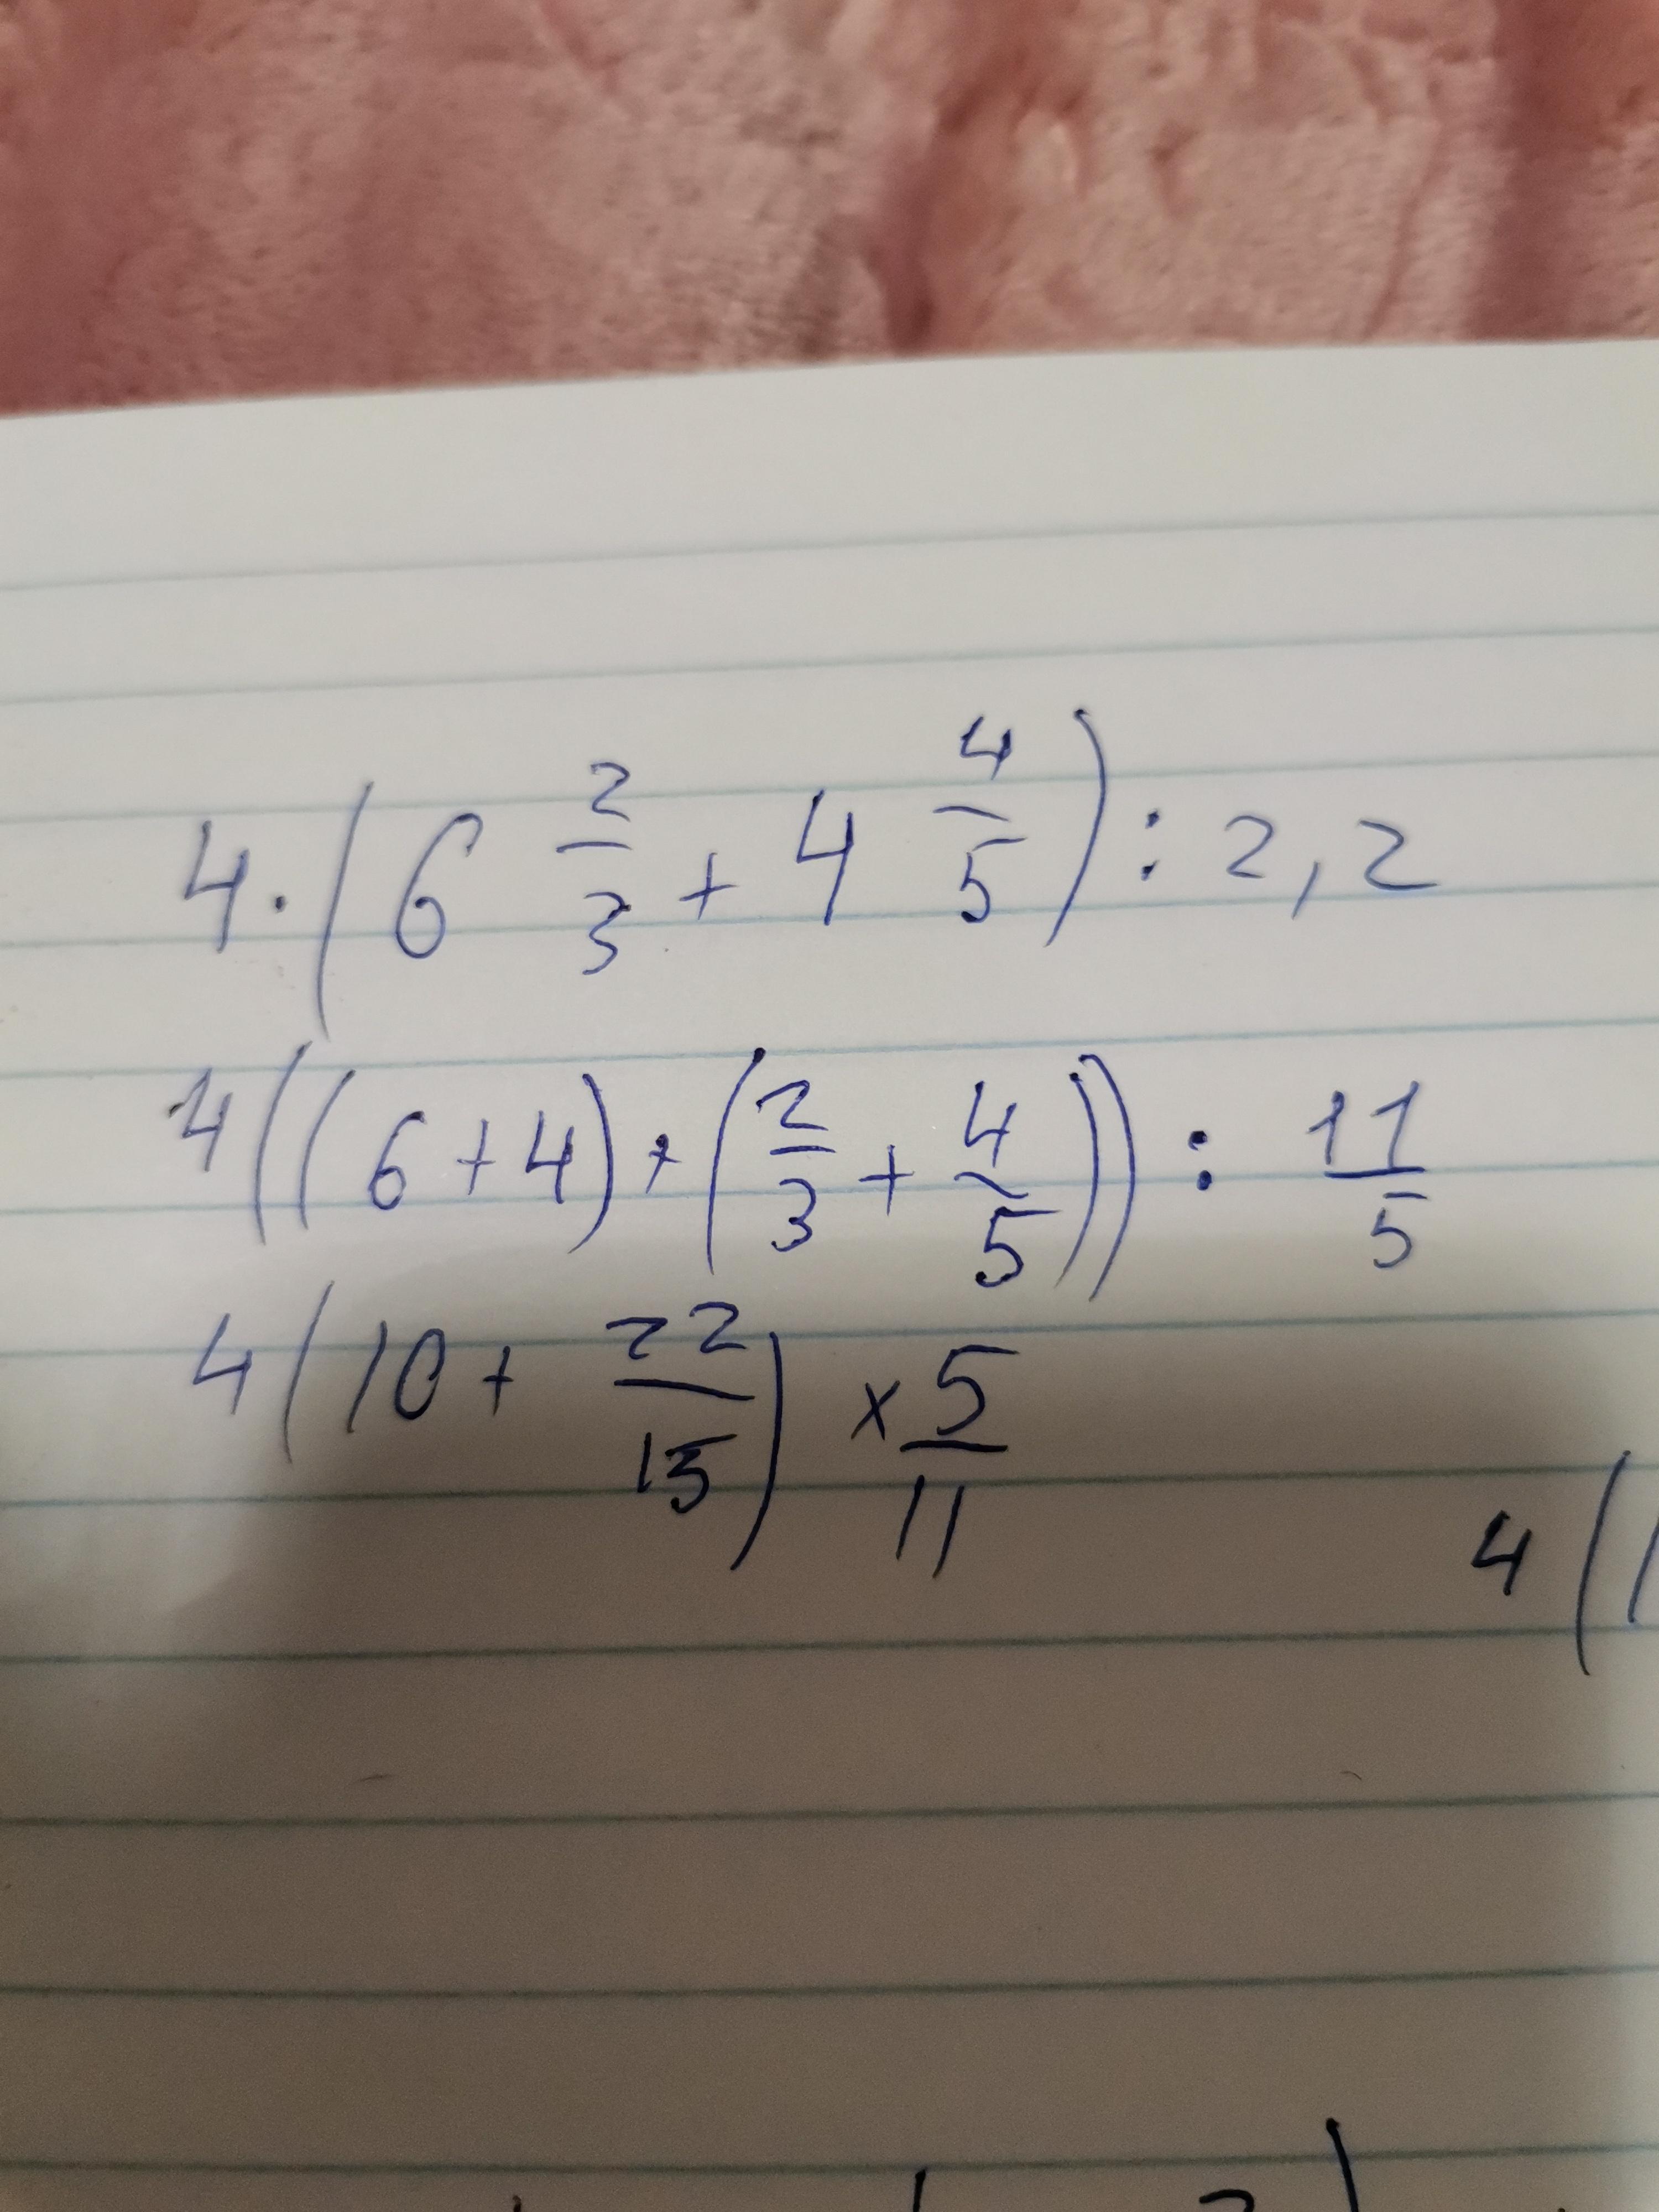 4 · (6 2/3 + 4 4/5) : 2,2
4((6+4) + (2/3 + 4/5)) : 11/5
4(10 + 22/15) × 5/11
4(1